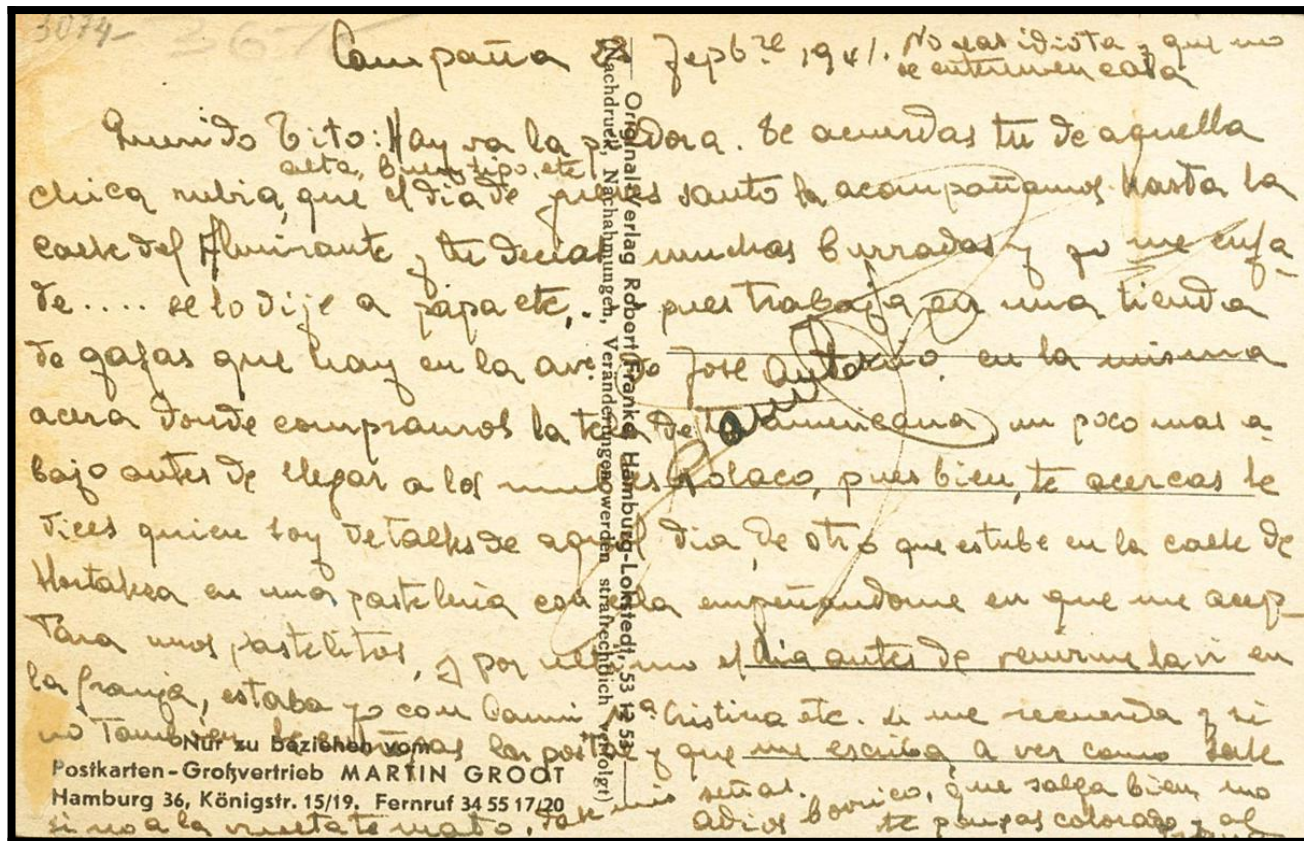 3074-
367
Campaña 28 Sepbre 1941.
No seas idiota y que no
se enteren en casa
Querido Tito: Hay va la p dora. Te acuerdas tu de aquella
alta, buen tipo, etc
chica rubia, que el dia de jueves santo la acompañamos hasta la
calle del Almirante y tu decias muchas burradas y yo me enfa-
de..... se lo dije a papa etc,. pues trabaja en una tienda
de gafas que hay en la ave. de Jose Antonio en la misma
acera donde compramos la tela de la americana, un poco mas a-
bajo antes de llegar a los muebles Rolaco, pues bien, te acercas le
dices quien soy detalles de aquel dia, de otro que estube en la calle de
Hortaleza en una pasteleria con ella empeñandome en que me acep-
tara unos pastelitos, y por ultimo el dia antes de venirme la vi en
la Granja, estaba yo con Mª Cristina etc. si me recuerda y si
no tambien le entregas la postal y que me escriba, a ver como sale
mis señas.
si no a la vuelta te mato,
adios borrico, que salga bien, no
te pongas colorado y al
Original-Verlag Robert Franke, Hamburg-Lokstedt, 53 12 53
(Nachdruck, Nachahmungen, Veränderungen werden strafrechtlich verfolgt)
Nur zu beziehen vom
Postkarten-Großvertrieb MARTIN GROOT
Hamburg 36, Königstr. 15/19. Fernruf 34 55 17/20